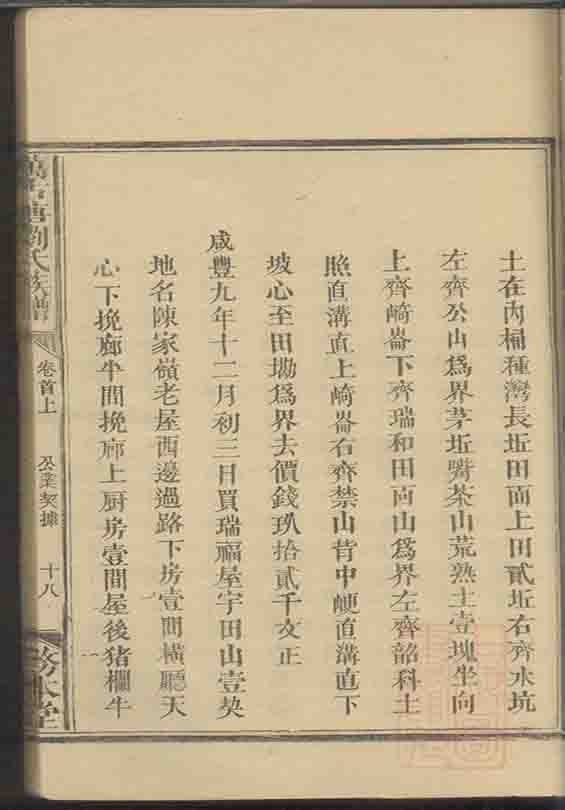 土在內桐種灣長坵田面上田貳坵右齊水坑
左齊公山爲界茅坵嘴茶山荒熟土壹塊坐向
上齊崎崙下齊瑞和田面山爲界左齊韶科土
照直溝直上崎崙右齊禁山背中峺直溝直下
坡心至田墈爲界去價錢玖拾貳千文正
咸豐九年十二月初三日買瑞福屋宇田山壹契
地名陳家嶺老屋西邊過路下房壹間橫廳天
心下挽廊半間挽廊上厨房壹間屋後猪欄牛
劉氏族譜
卷首上
公業契據
十八
務本堂